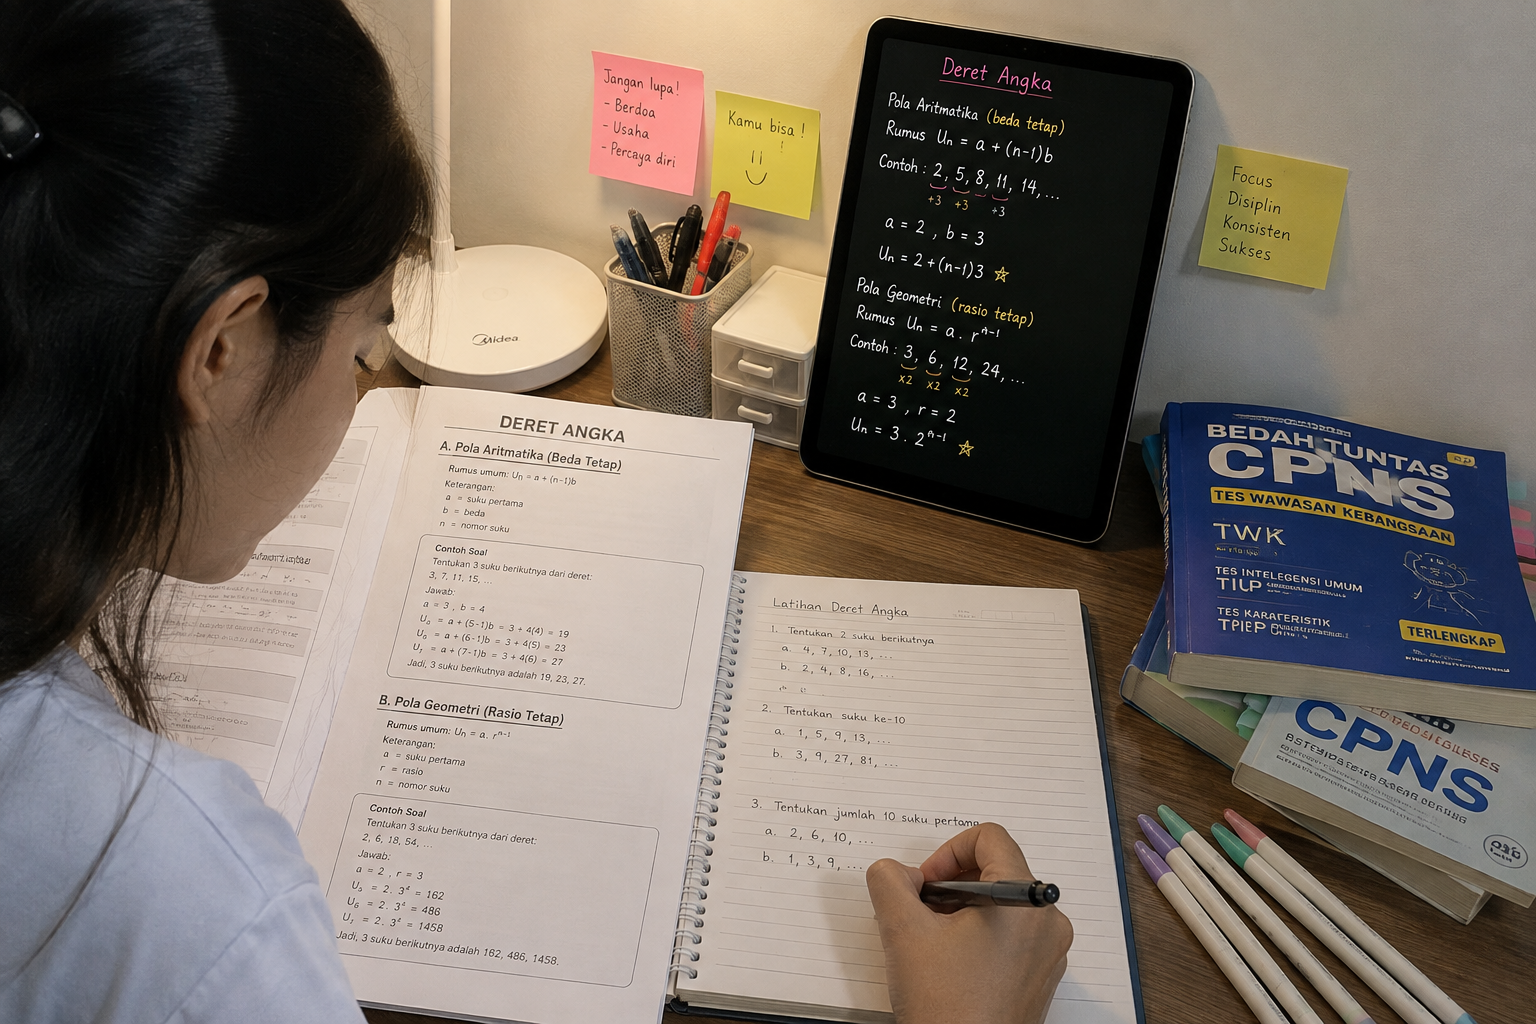 Jangan lupa!
- Berdoa
- Usaha
- Percaya diri
Kamu bisa !
Deret Angka
Pola Aritmatika (beda tetap)
Rumus Uₙ = a + (n-1)b
Contoh : 2, 5, 8, 11, 14, ...
+3 +3 +3
a = 2 , b = 3
Uₙ = 2 + (n-1)3
Pola Geometri (rasio tetap)
Rumus Uₙ = a . rⁿ⁻¹
Contoh : 3, 6, 12, 24, ...
x2 x2 x2
a = 3 , r = 2
Uₙ = 3 . 2ⁿ⁻¹
Focus
Disiplin
Konsisten
Sukses
Midea
DERET ANGKA
A. Pola Aritmatika (Beda Tetap)
Rumus umum: Uₙ = a + (n-1)b
Keterangan:
a = suku pertama
b = beda
n = nomor suku
Contoh Soal
Tentukan 3 suku berikutnya dari deret:
3, 7, 11, 15, ...
Jawab:
a = 3 , b = 4
= a + (5-1)b = 3 + 4(4) = 19
= a + (6-1)b = 3 + 4(5) = 23
= a + (7-1)b = 3 + 4(6) = 27
Jadi, 3 suku berikutnya adalah 19, 23, 27.
B. Pola Geometri (Rasio Tetap)
Rumus umum: Uₙ = a. rⁿ⁻¹
Keterangan:
a = suku pertama
r = rasio
n = nomor suku
Contoh Soal
Tentukan 3 suku berikutnya dari deret:
2, 6, 18, 54, ...
Jawab:
a = 2 , r = 3
= 162
= 486
= 1458
Jadi, 3 suku berikutnya adalah 162, 486, 1458.
Latihan Deret Angka
1. Tentukan 2 suku berikutnya
a. 4, 7, 10, 13, ...
b. 2, 4, 8, 16, ...
2. Tentukan suku ke-10
a. 1, 5, 9, 13, ...
b. 3, 9, 27, 81, ...
3. Tentukan jumlah 10 suku pertama
a. 2, 6, 10, ...
b. 1, 3, 9, ...
BEDAH TUNTAS
CPNS
TES WAWASAN KEBANGSAAN
TWK
TES INTELEGENSI UMUM
TES KARAKTERISTIK
TERLENGKAP
CPNS